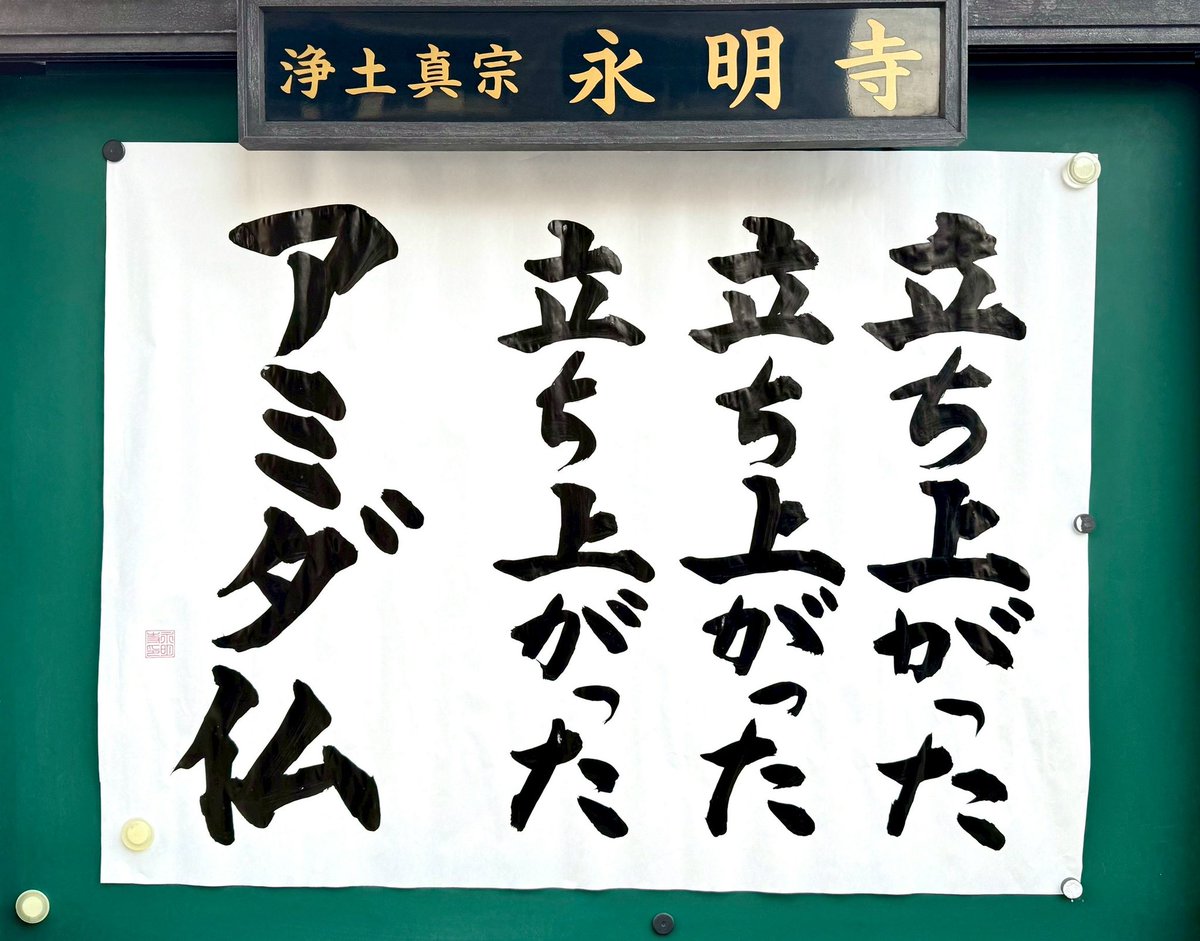 浄土真宗 永明寺
立ち上がった
立ち上がった
立ち上がった
アミダ仏